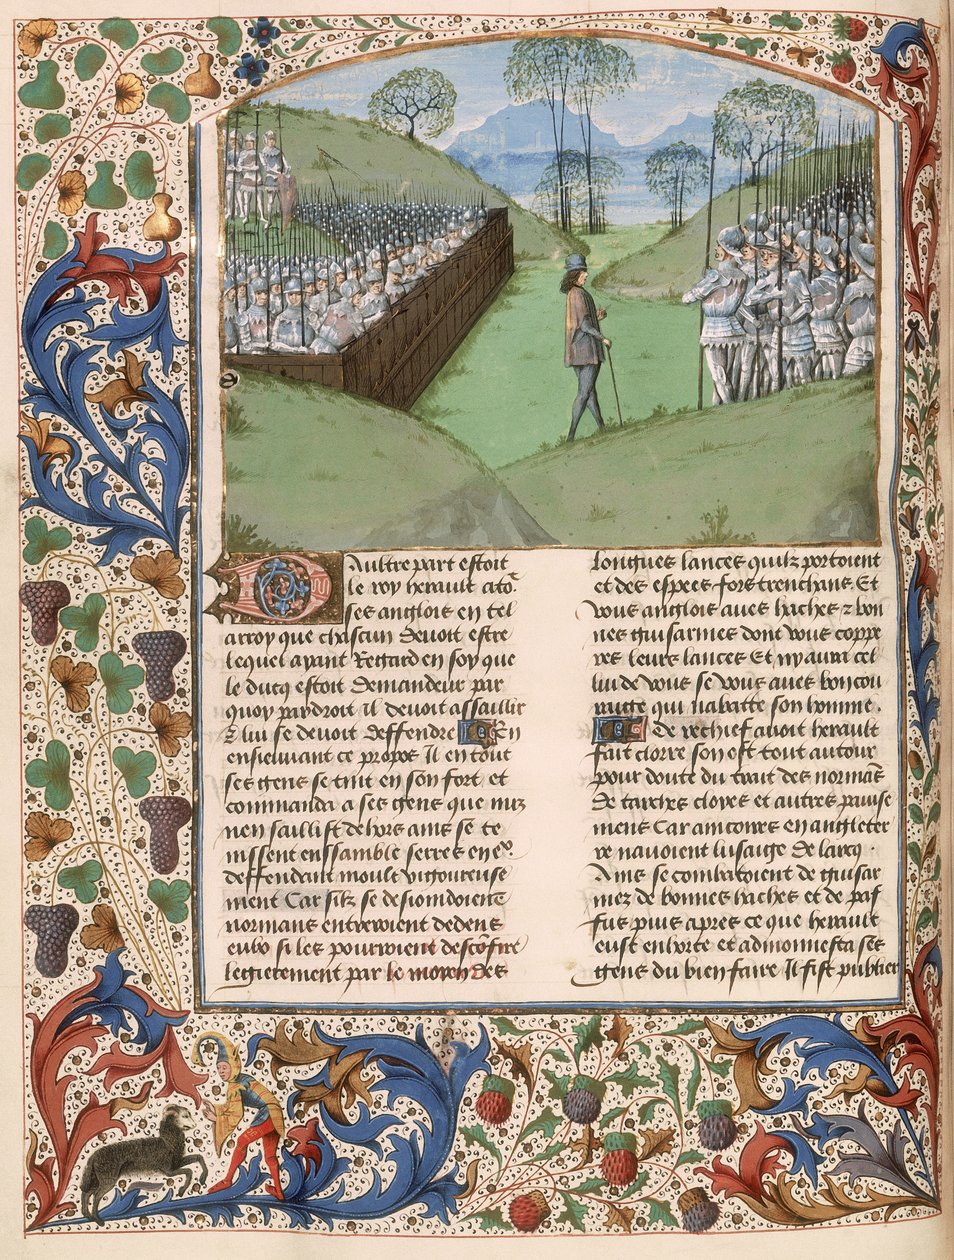 Aultre part estoit
le roy herault atō.
ses anglois en tel
arroy que chascun devoit estre
lequel ayant Regard en soy que
le ducq estoit demandeur par
quoy pardroit il devoit assaillir
Et lui se devoit deffendre En
ensieuvant ce propos Il en tout
ses gens se tint en son fort et
commanda a ses gens que nuz
nen saillist dehors ains se te
nissent enssamble serres en eulx
deffendant moult vigoureuse
ment Car silz se desjoindoient
normans entreroient dedens
eulx si les pourroient descōfire
legierement par le moyen des
longues lances quilz portoient
et des espees fors trenchans Et
vous anglois aves haches & bon
nes guisarmes dont vous coppe
res leurs lances Et ny aura cel
lui de vous se vous aves bon cou
raige qui nabatte son homme.
De rechief avoit herault
fait clorre son est tout autour
pour doute du trait des normās
De targes cloyes et autres pavise
mens Car amcoires en angleter
re navoient lusaige de larcq.
Ains se combatoient de guisar
mez de bonnes haches et de paf
fus puis apres ce que herault
eust enhorte et admonnesta ses
gens du bien faire Il fist publier